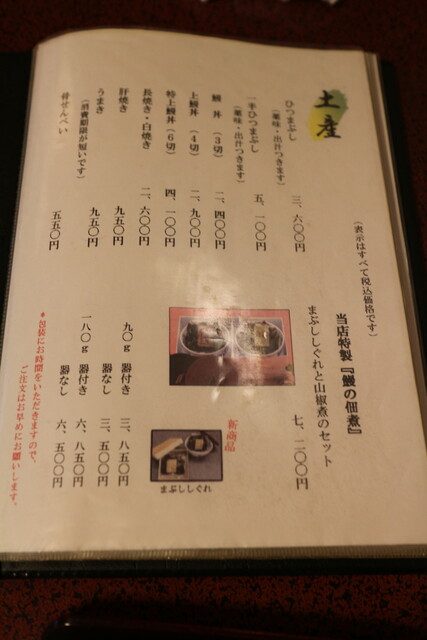 土産
(表示はすべて税込価格です)
ひつまぶし 三、六〇〇円
(薬味・出汁つきます)
一半ひつまぶし 五、一〇〇円
(薬味・出汁つきます)
鰻丼(3切) 二、四〇〇円
上鰻丼(4切) 二、九〇〇円
特上鰻丼(6切) 四、一〇〇円
長焼き・白焼き 二、六〇〇円
肝焼き 九五〇円
うまき 九五〇円
(消費期限が短いです)
骨せんべい 五五〇円
当店特製『鰻の佃煮』
まぶししぐれと山椒煮のセット
七、二〇〇円
新商品
まぶししぐれ
九〇g 器付き 三、八五〇円
器なし 三、五〇〇円
一八〇g 器付き 六、八五〇円
器なし 六、五〇〇円
*包装にお時間をいただきますので、
ご注文はお早めにお願いします。